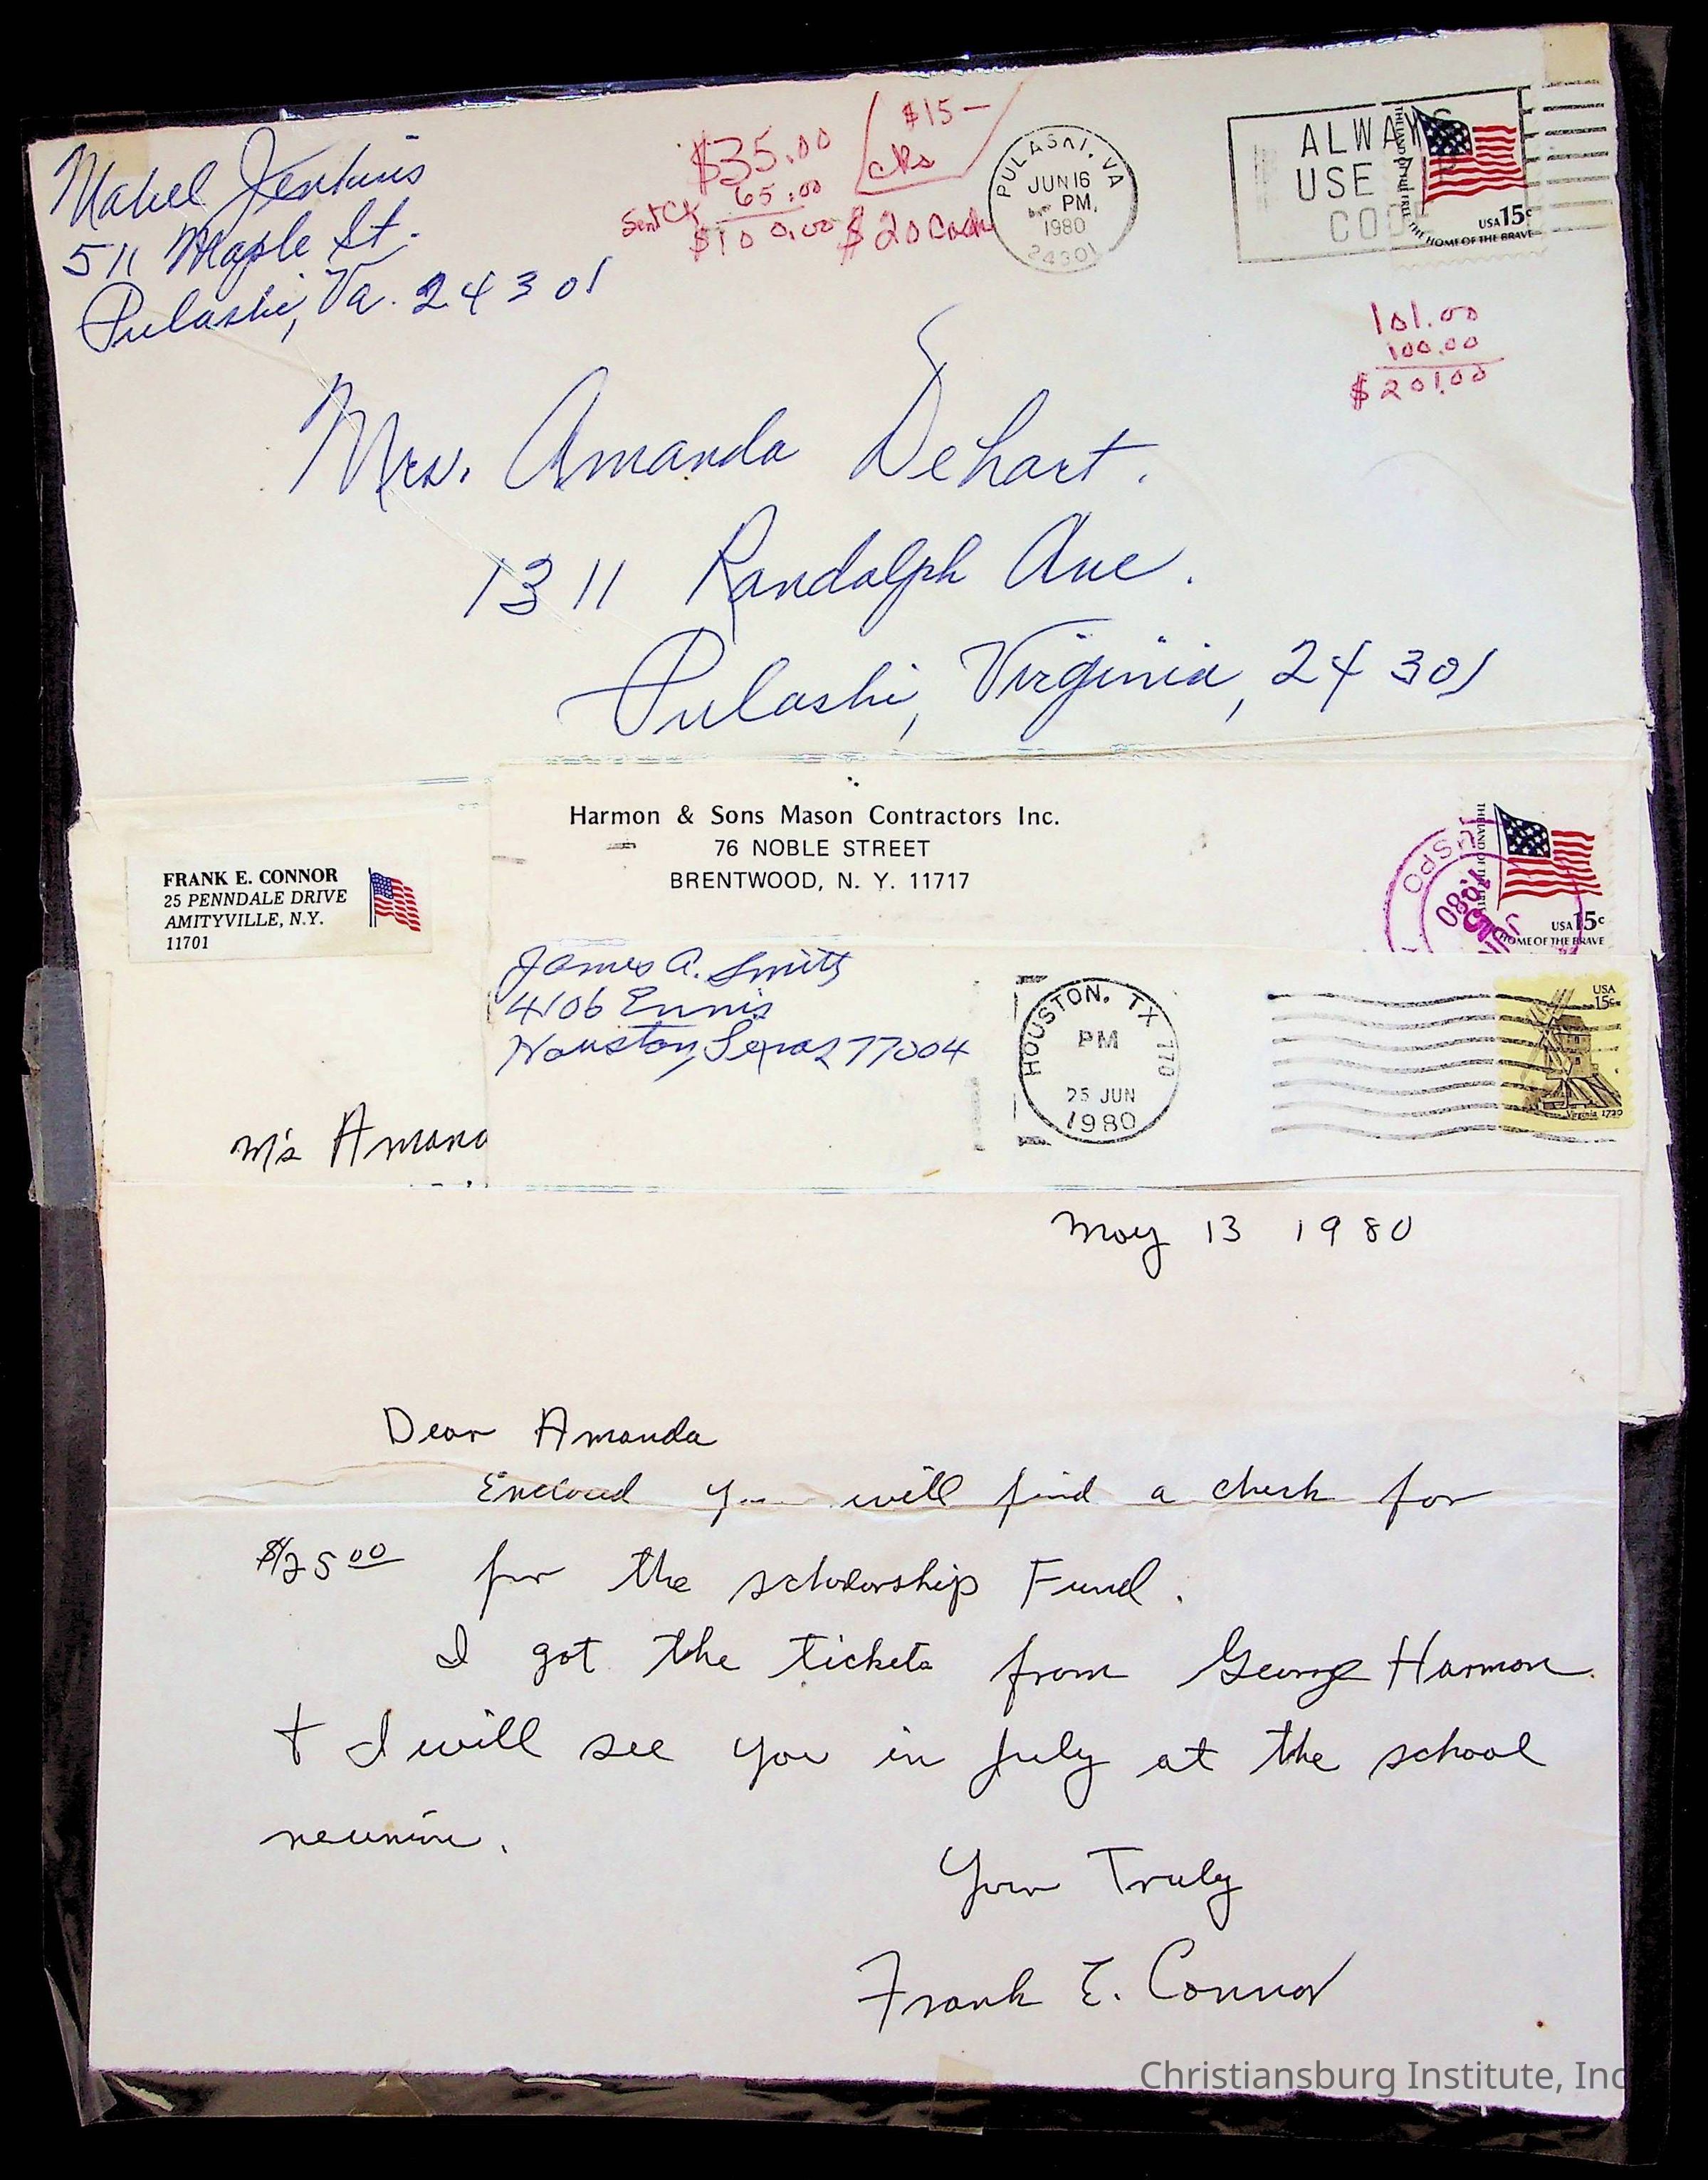 Mabel Jenkins
511 Maple St.
Pulaski, Va. 24301
$35.00
65.00
Sent Ck $100.00
$15—
cks
$20 Cash
PULASKI, VA
JUN 16
PM
1980
24301
ALWAYS
USE
CODE
THE LAND OF THE FREE
THE HOME OF THE BRAVE
USA 15c
101.00
100.00
$201.00
Mrs. Amanda Dehart.
1311 Randolph Ave.
Pulaski, Virginia, 24301
Harmon & Sons Mason Contractors Inc.
76 NOBLE STREET
BRENTWOOD, N. Y. 11717
USPO
1980
USA 15c
HOME OF THE BRAVE
FRANK E. CONNOR
25 PENNDALE DRIVE
AMITYVILLE, N.Y.
11701
James A. Smith
4106 Ennis
Houston, Texas 77004
HOUSTON, TX 770
PM
25 JUN
1980
USA
15c
Virginia 1720
M's Amand
May 13 1980
Dear Amanda
Enclosed you will find a check for
$25.00 for the scholarship Fund.
I got the tickets from George Harmon
+ I will see you in July at the school
reunion.
Your Truly
Frank E. Connor
Christiansburg Institute, Inc